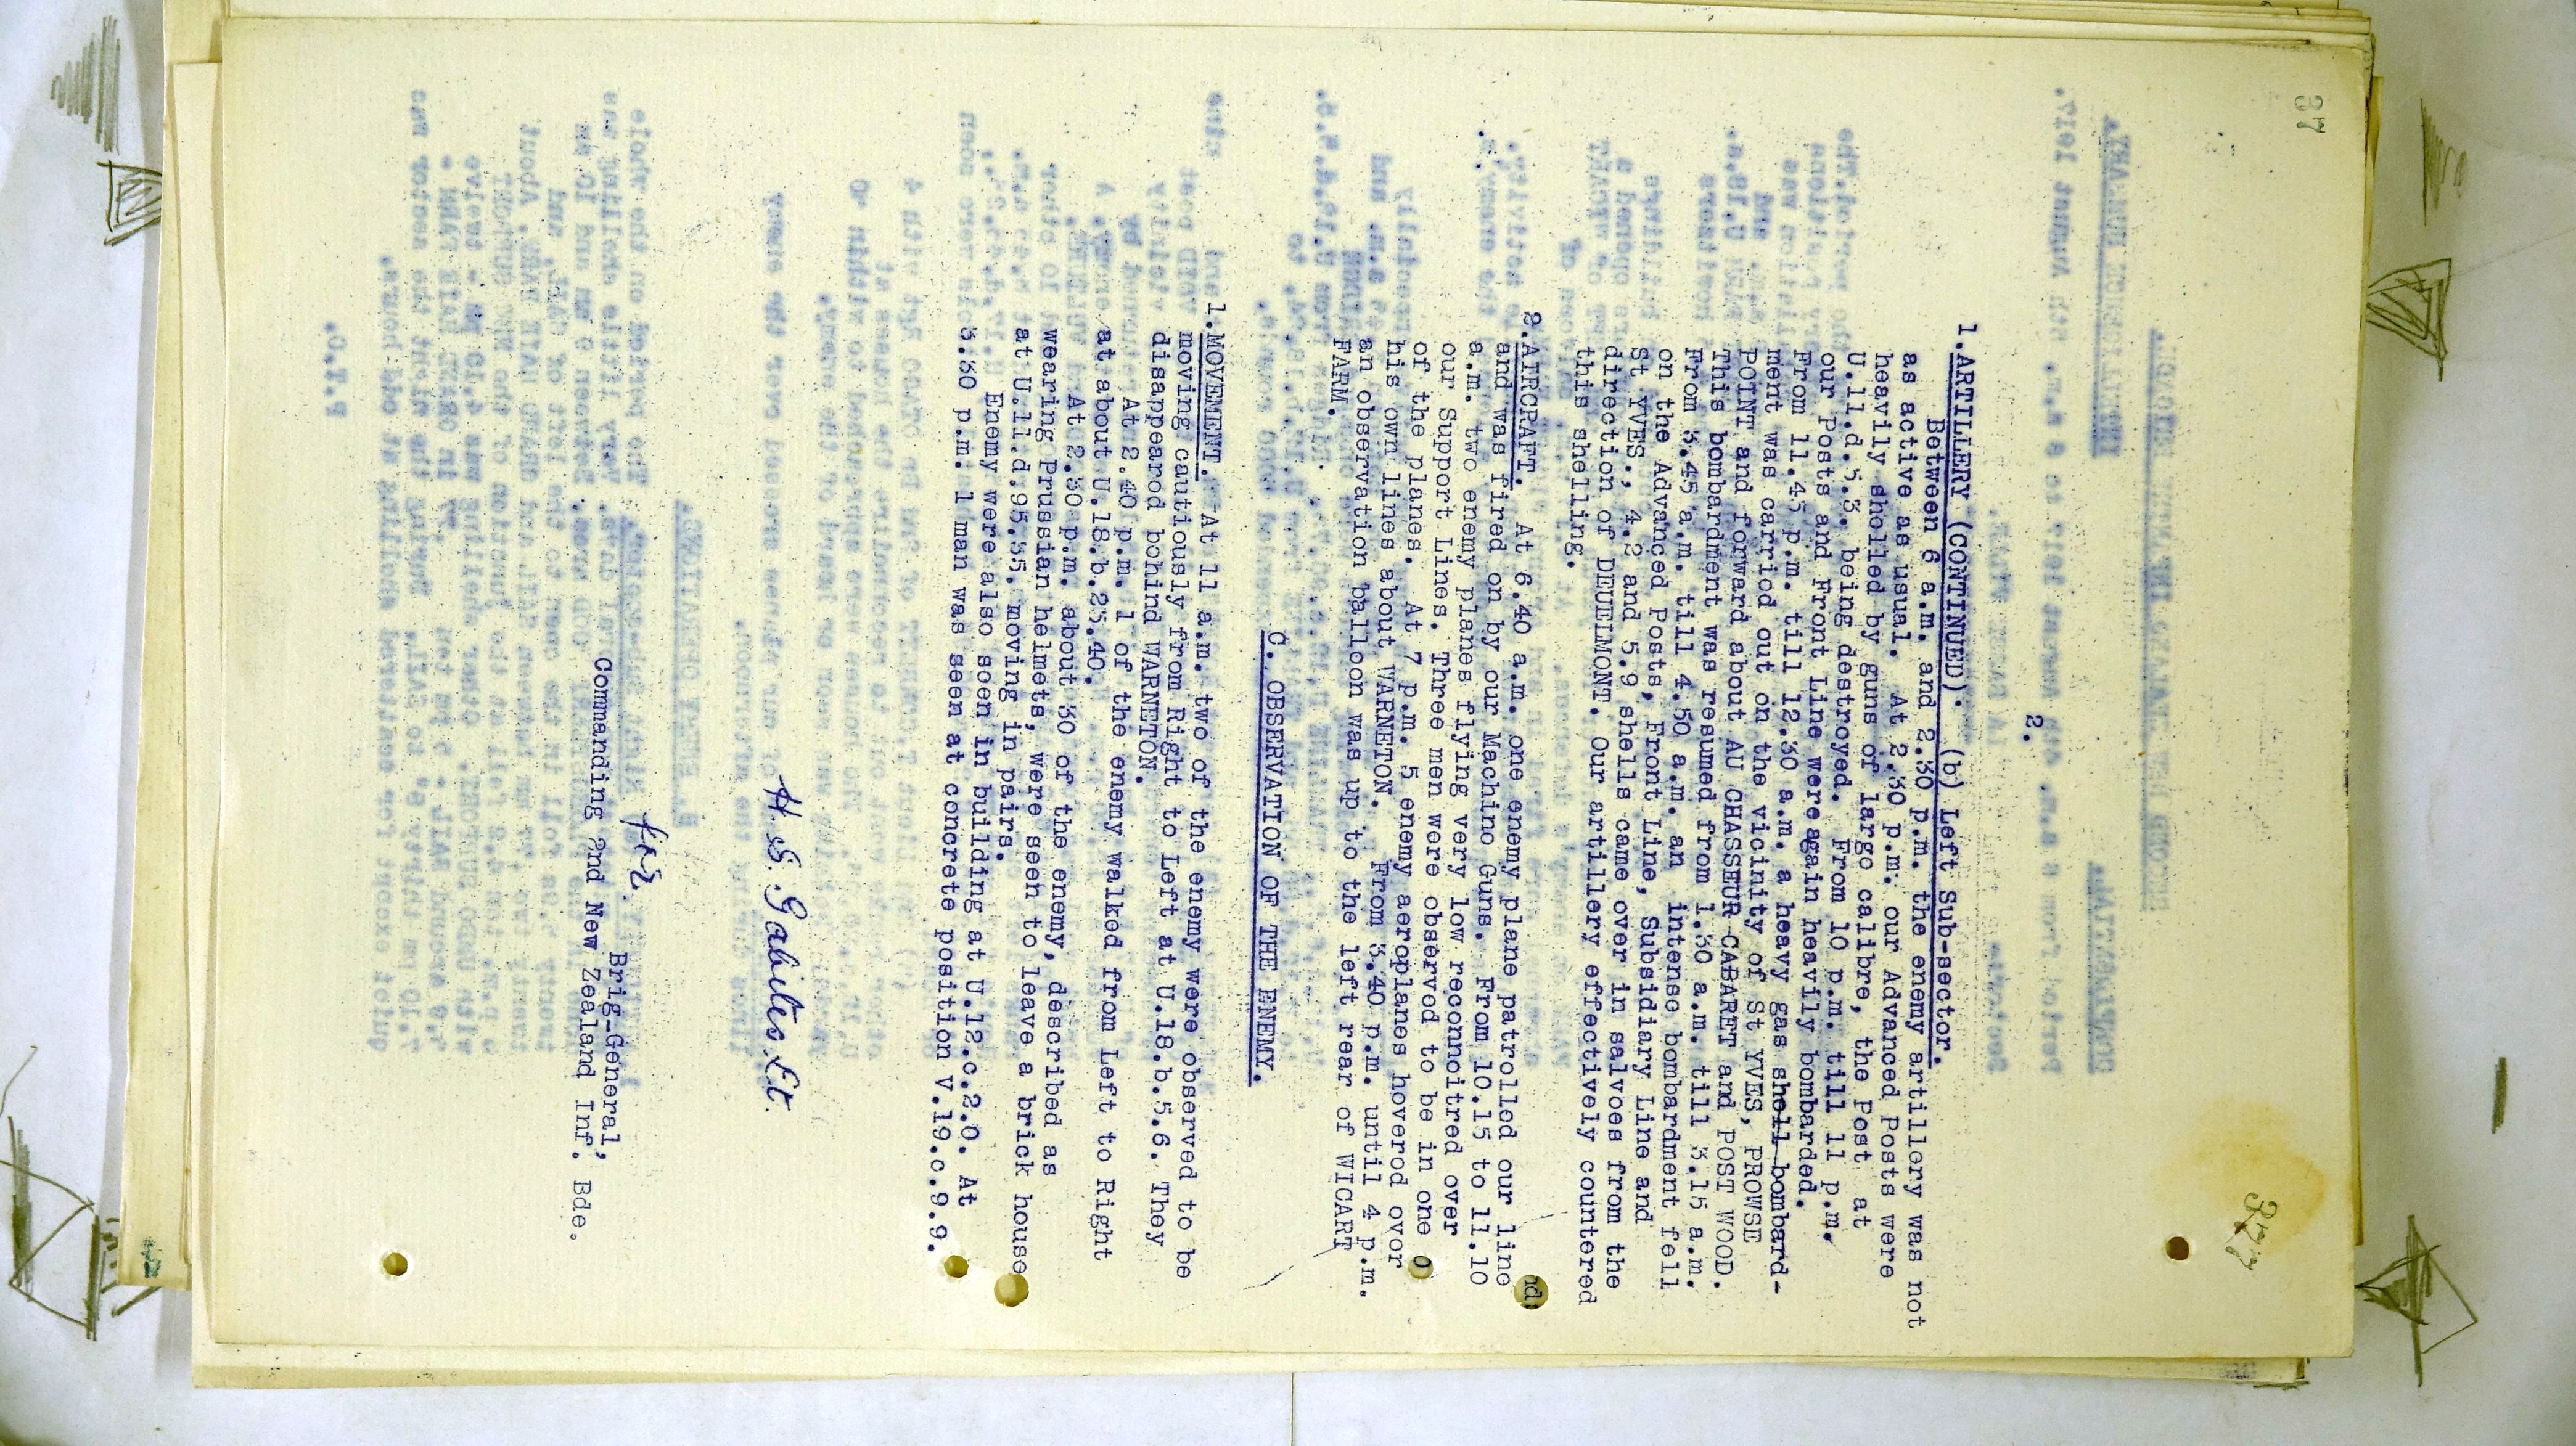 37
377
2.
1.ARTILLERY (CONTINUED). (b) Left Sub-sector.
Between 6 a.m. and 2.30 p.m. the enemy artillery was not
as active as usual. At 2.30 p.m. our Advanced Posts were
heavily shelled by guns of large calibre, the Post at
U.11.d.5.3. being destroyed. From 10 p.m. till 11 p.m.
our Posts and Front Line were again heavily bombarded.
From 11.45 p.m. till 12.30 a.m. a heavy gas shell bombard-
ment was carried out on the vicinity of St YVES, PROWSE
POINT and forward about AU CHASSEUR CABARET and POST WOOD.
This bombardment was resumed from 1.30 a.m. till 3.15 a.m.
From 3.45 a.m. till 4.50 a.m. an intense bombardment fell
on the Advanced Posts, Front Line, Subsidiary Line and
St YVES., 4.2 and 5.9 shells came over in salvoes from the
direction of DEUELMONT. Our artillery effectively countered
this shelling.
2.AIRCRAFT. At 6.40 a.m. one enemy plane patrolled our line
and was fired on by our Machine Guns. From 10.15 to 11.10
a.m. two enemy planes flying very low reconnoitred over
our Support Lines. Three men were observed to be in one
of the planes. At 7 p.m. 5 enemy aeroplanes hovered over
his own lines about WARNETON. From 3.40 p.m. until 4 p.m.
an observation balloon was up to the left rear of WICART
FARM.
C. OBSERVATION OF THE ENEMY.
1.MOVEMENT. At 11 a.m. two of the enemy were observed to be
moving cautiously from Right to Left at U.18.b.5.6. They
disappeared behind WARNETON.
At 2.40 p.m. 1 of the enemy walked from Left to Right
at about U.18.b.25.40.
At 2.30 p.m. about 30 of the enemy, described as
wearing Prussian helmets, were seen to leave a brick house
at U.11.d.95.35. moving in pairs.
Enemy were also seen in building at U.12.c.2.0. At
3.30 p.m. 1 man was seen at concrete position V.19.c.9.9.
H. S. Gabites Lt.
for
Brig-General,
Commanding 2nd New Zealand Inf. Bde.